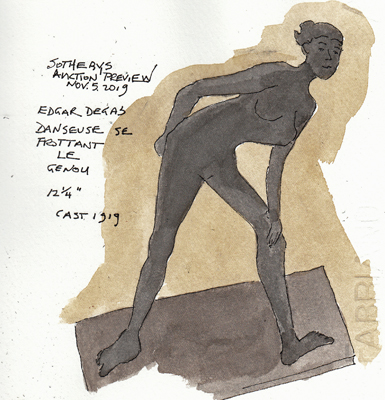 SOTHEBYS
AUCTION PREVIEW
NOV. 5. 2019
EDGAR DEGAS
DANSEUSE SE
FROTTANT
LE
GENOU
12 1/4"
CAST 1919